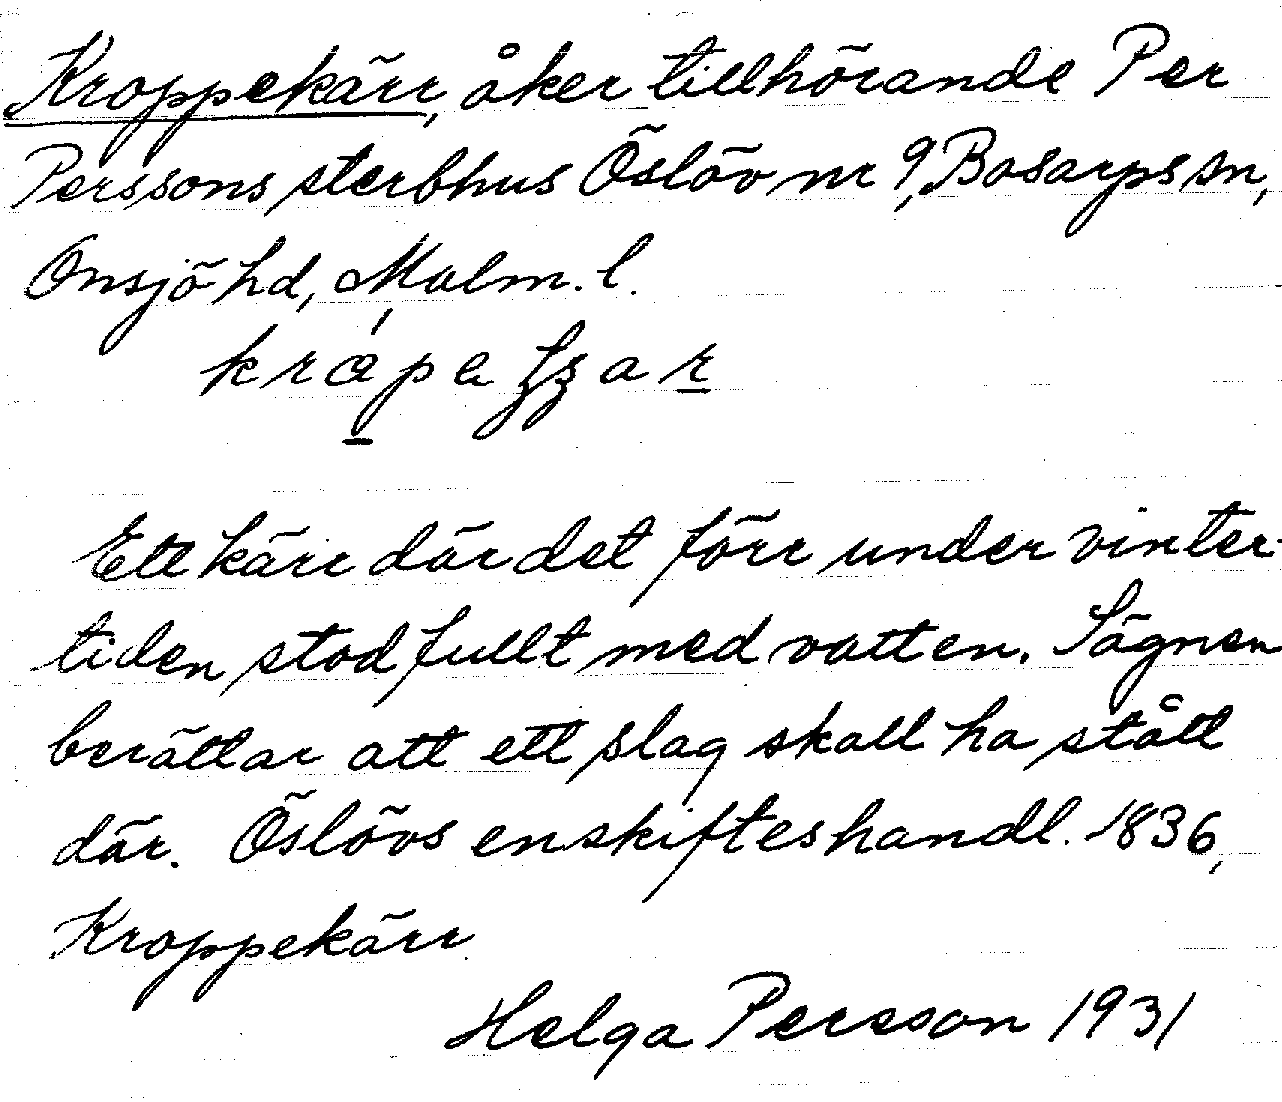 Kroppekärr, åker tillhörande Per
Perssons sterbhus Öslöv nr 9, Bosarps sn,
Onsjö hd, Malm. l.
Ett kärr där det förr under vinter-
tiden stod fullt med vatten. Sägnen
berättar att ett slag skall ha stått
där. Öslövs enskifteshandl. 1836,
Kroppekärr
Helga Persson 1931